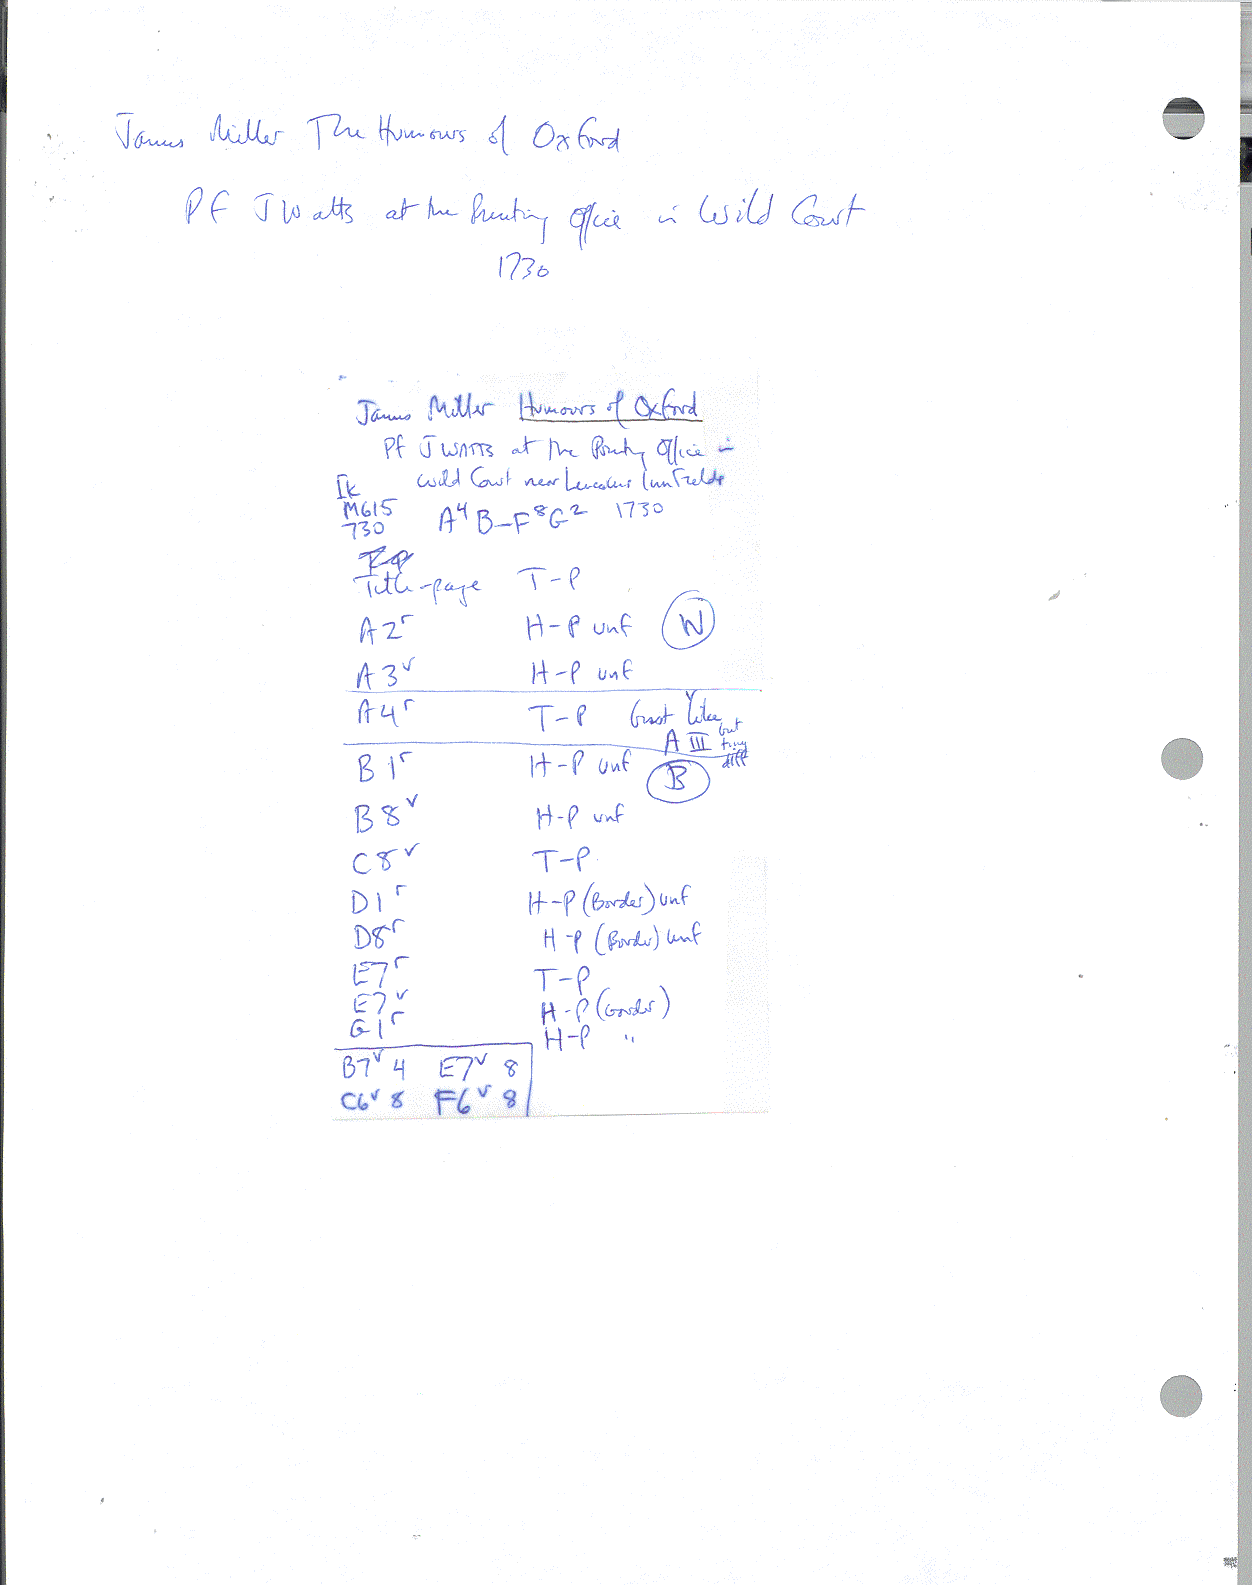 James Miller The Humours of Oxford
PF J Watts at the Printing Office in Wild Court
1730
James Miller Humours of Oxford
PF J WATTS at the Printing Office in
Wild Court near Lincolns Inn Fields
Ik
M615
730
A⁴ B–F⁸ G² 1730
Title-page T-P
A2ʳ H-P unf W
A3ᵛ H-P unf
A4ʳ T-P like
A III but tiny diff
B1ʳ H-P unf B
B8ᵛ H-P unf
C8ᵛ T-P.
D1ʳ H-P (Border) unf
D8ʳ H-P (Border) unf
E7ʳ T-P
E7ᵛ H-P (Border)
G1ʳ H-P "
B7ᵛ 4 E7ᵛ 8
C6ᵛ 8 F6ᵛ 8